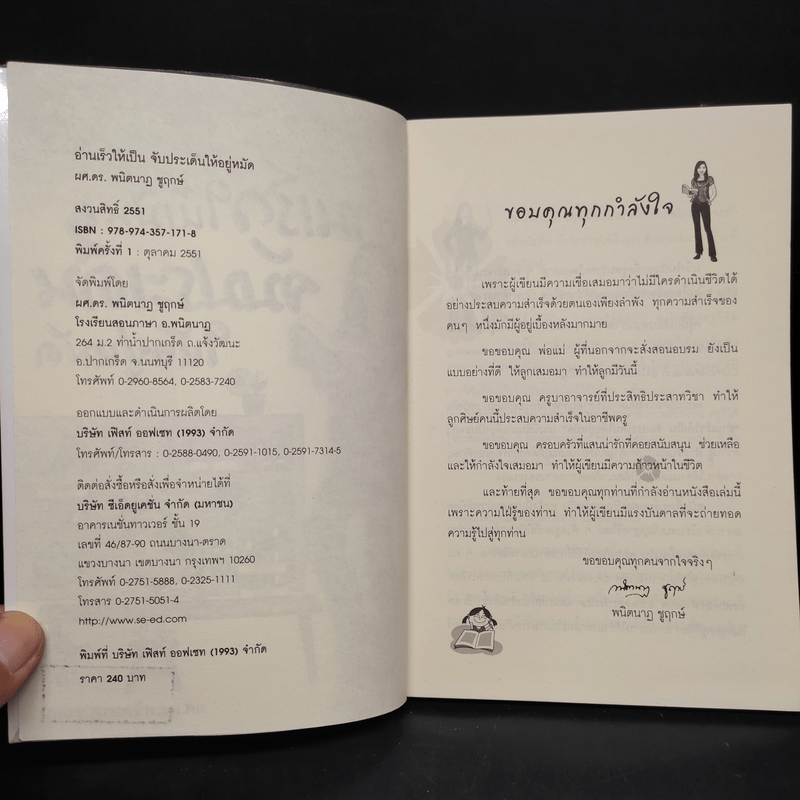 อ่านเร็วให้เป็น จับประเด็นให้อยู่หมัด
ผศ.ดร. พนิตนาฏ ชูฤกษ์
สงวนสิทธิ์ 2551
ISBN : 978-974-357-171-8
พิมพ์ครั้งที่ 1 : ตุลาคม 2551
จัดพิมพ์โดย
ผศ.ดร. พนิตนาฏ ชูฤกษ์
โรงเรียนสอนภาษา อ.พนิตนาฏ
264 ม.2 ท่าน้ำปากเกร็ด ถ.แจ้งวัฒนะ
อ.ปากเกร็ด จ.นนทบุรี 11120
โทรศัพท์ 0-2960-8564, 0-2583-7240
ออกแบบและดำเนินการผลิตโดย
บริษัท เฟิสท์ ออฟเซท (1993) จำกัด
โทรศัพท์/โทรสาร : 0-2588-0490, 0-2591-1015, 0-2591-7314-5
ติดต่อสั่งซื้อหรือสั่งเพื่อจำหน่ายได้ที่
บริษัท ซีเอ็ดยูเคชั่น จำกัด (มหาชน)
อาคารเนชั่นทาวเวอร์ ชั้น 19
เลขที่ 46/87-90 ถนนบางนา-ตราด
แขวงบางนา เขตบางนา กรุงเทพฯ 10260
โทรศัพท์ 0-2751-5888, 0-2325-1111
โทรสาร 0-2751-5051-4
http://www.se-ed.com/
พิมพ์ที่ บริษัท เฟิสท์ ออฟเซท (1993) จำกัด
ราคา 240 บาท
ขอบคุณทุกกำลังใจ
เพราะผู้เขียนมีความเชื่อเสมอมาว่าไม่มีใครดำเนินชีวิตได้
อย่างประสบความสำเร็จด้วยตนเองเพียงลำพัง ทุกความสำเร็จของ
คนๆ หนึ่งมักมีผู้อยู่เบื้องหลังมากมาย
ขอขอบคุณ พ่อแม่ ผู้ที่นอกจากจะสั่งสอนอบรม ยังเป็น
แบบอย่างที่ดี ให้ลูกเสมอมา ทำให้ลูกมีวันนี้
ขอขอบคุณ ครูบาอาจารย์ที่ประสิทธิประสาทวิชา ทำให้
ลูกศิษย์คนนี้ประสบความสำเร็จในอาชีพครู
ขอขอบคุณ ครอบครัวที่แสนน่ารักที่คอยสนับสนุน ช่วยเหลือ
และให้กำลังใจเสมอมา ทำให้ผู้เขียนมีความก้าวหน้าในชีวิต
และท้ายที่สุด ขอขอบคุณทุกท่านที่กำลังอ่านหนังสือเล่มนี้
เพราะความใฝ่รู้ของท่าน ทำให้ผู้เขียนมีแรงบันดาลที่จะถ่ายทอด
ความรู้ไปสู่ทุกท่าน
ขอขอบคุณทุกคนจากใจจริงๆ
พนิตนาฏ ชูฤกษ์
พนิตนาฏ ชูฤกษ์